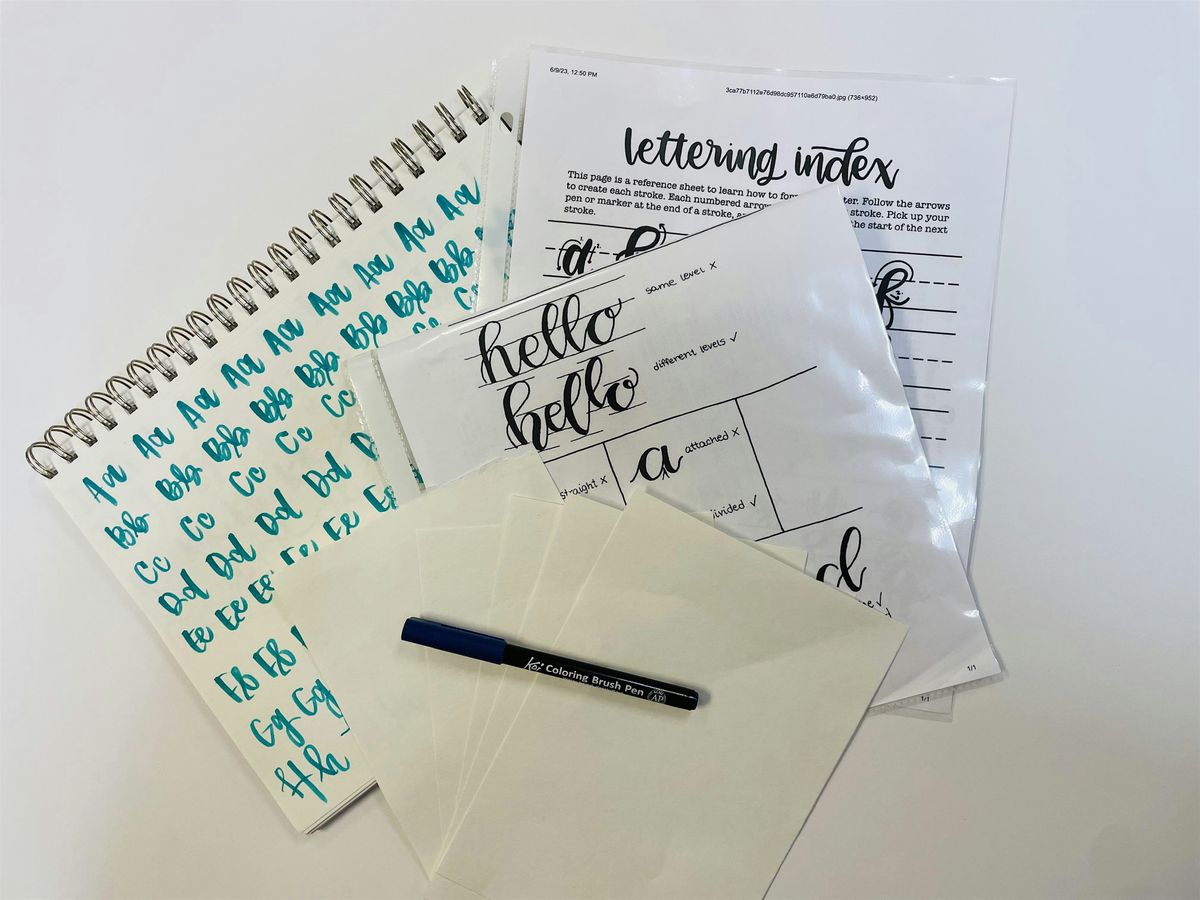 6/9/23, 12:50 PM
3ca77b7112e76d98dc957110a6d79ba0.jpg (736×952)
lettering index
This page is a reference sheet to learn how to form ter. Follow the arrows
to create each stroke. Each numbered arrow stroke. Pick up your
pen or marker at the end of a stroke, the start of the next
stroke.
a
hello same level x
hello different levels ✓
straight x
a attached x
divided ✓
d
1/1
1/1
Aa Aa Aa Aa Aa Aa Aa Aa Aa
Bb Bb Bb Bb Bb Bb Bb Bb Bb
Cc Cc Cc Cc Cc Cc Cc
Dd Dd Dd Dd D
Ee Ee Ee Ee Ee Ee
Ff Ff
Gg Gg
Hh
Koi Coloring Brush Pen
AP